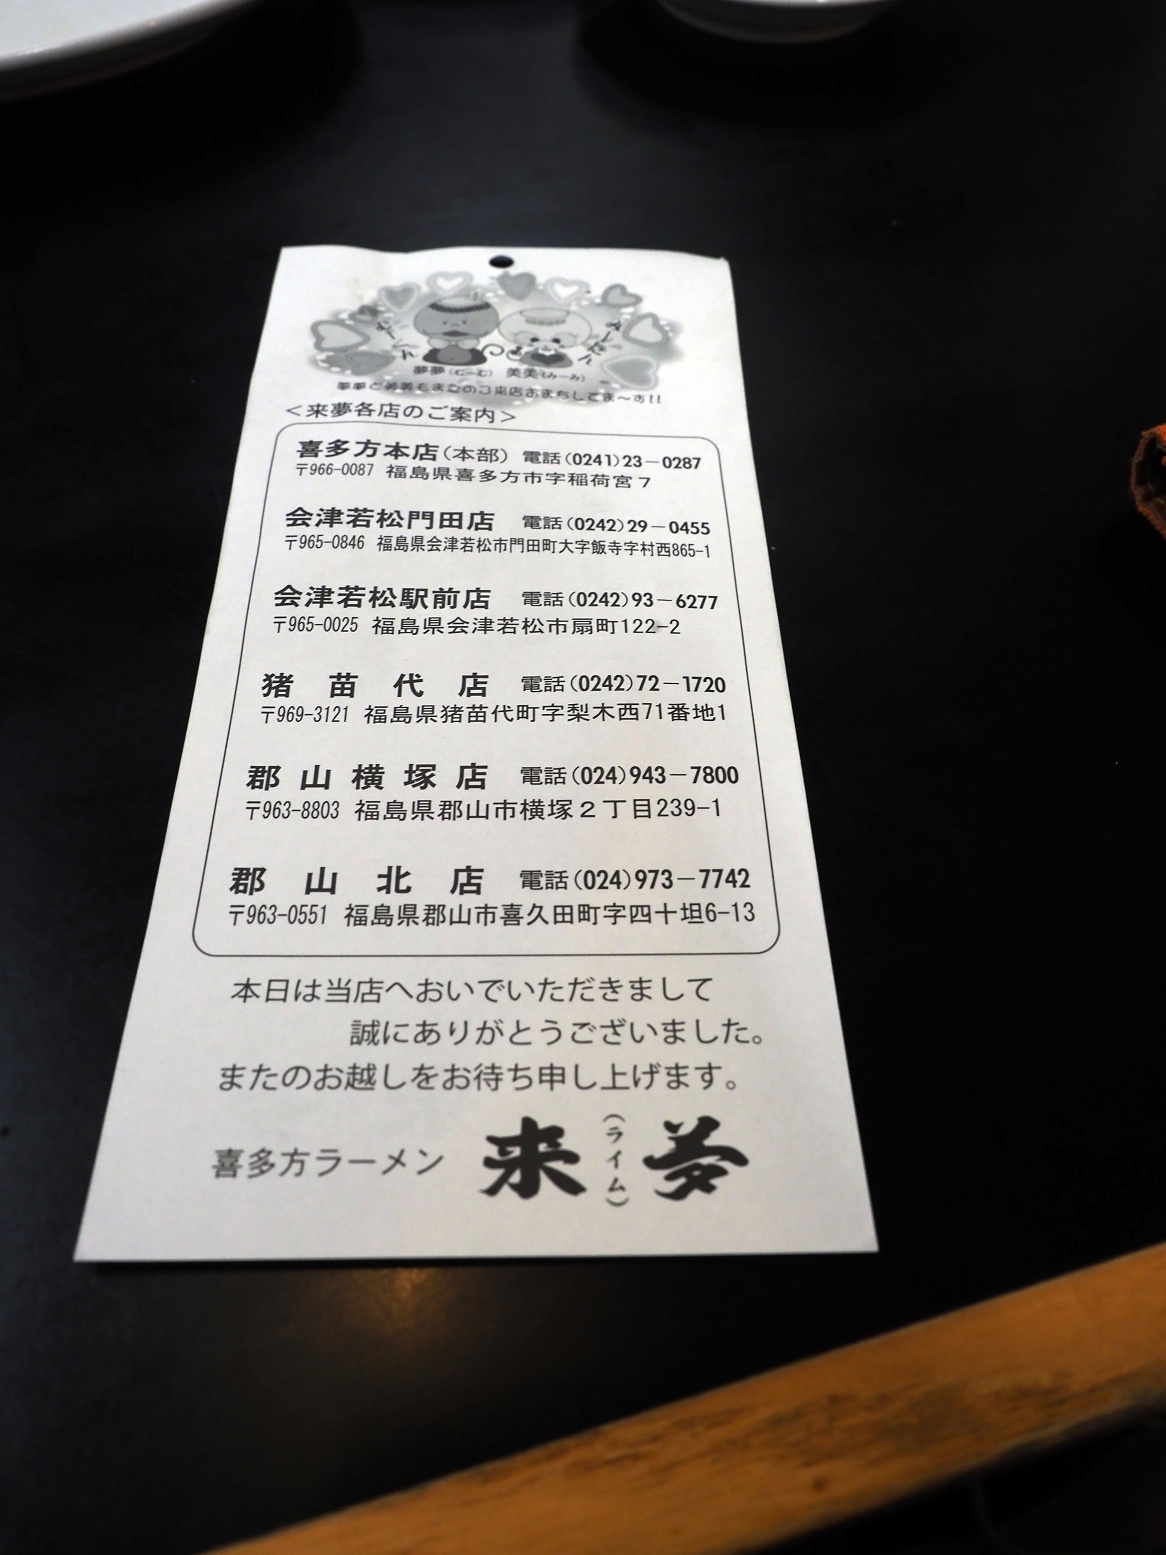 夢夢(むーむ) 美美(みーみ)
夢夢と美美もまたのご来店おまちしてま～す!!
＜来夢各店のご案内＞
喜多方本店(本部) 電話(0241)23－0287
〒966-0087 福島県喜多方市字稲荷宮７
会津若松門田店 電話(0242)29－0455
〒965-0846 福島県会津若松市門田町大字飯寺字村西865-1
会津若松駅前店 電話(0242)93－6277
〒965-0025 福島県会津若松市扇町122-2
猪苗代店 電話(0242)72－1720
〒969-3121 福島県猪苗代町字梨木西71番地1
郡山横塚店 電話(024)943－7800
〒963-8803 福島県郡山市横塚２丁目239-1
郡山北店 電話(024)973－7742
〒963-0551 福島県郡山市喜久田町字四十坦6-13
本日は当店へおいでいただきまして
誠にありがとうございました。
またのお越しをお待ち申し上げます。
喜多方ラーメン 来夢(ライム)